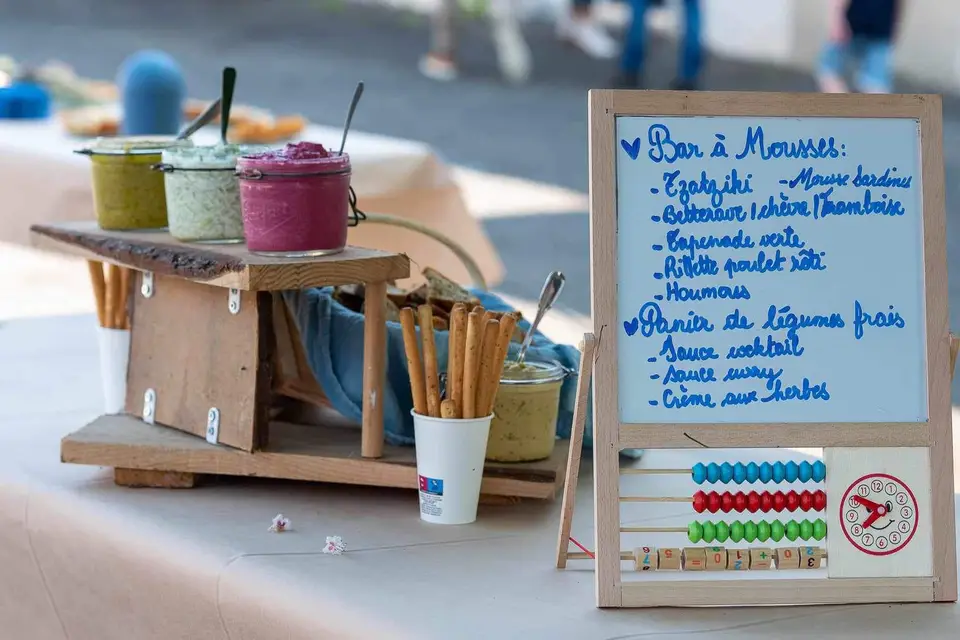 Bar à Mousses:
- Tzatziki - Mousse Sardines
- Betterave / chèvre / Framboise
- Tapenade verte
- Rillette poulet rôti
- Houmous
Panier de légumes frais
- Sauce cocktail
- Sauce curry
- Crème aux herbes
12
1
2
3
4
5
6
7
8
9
10
11